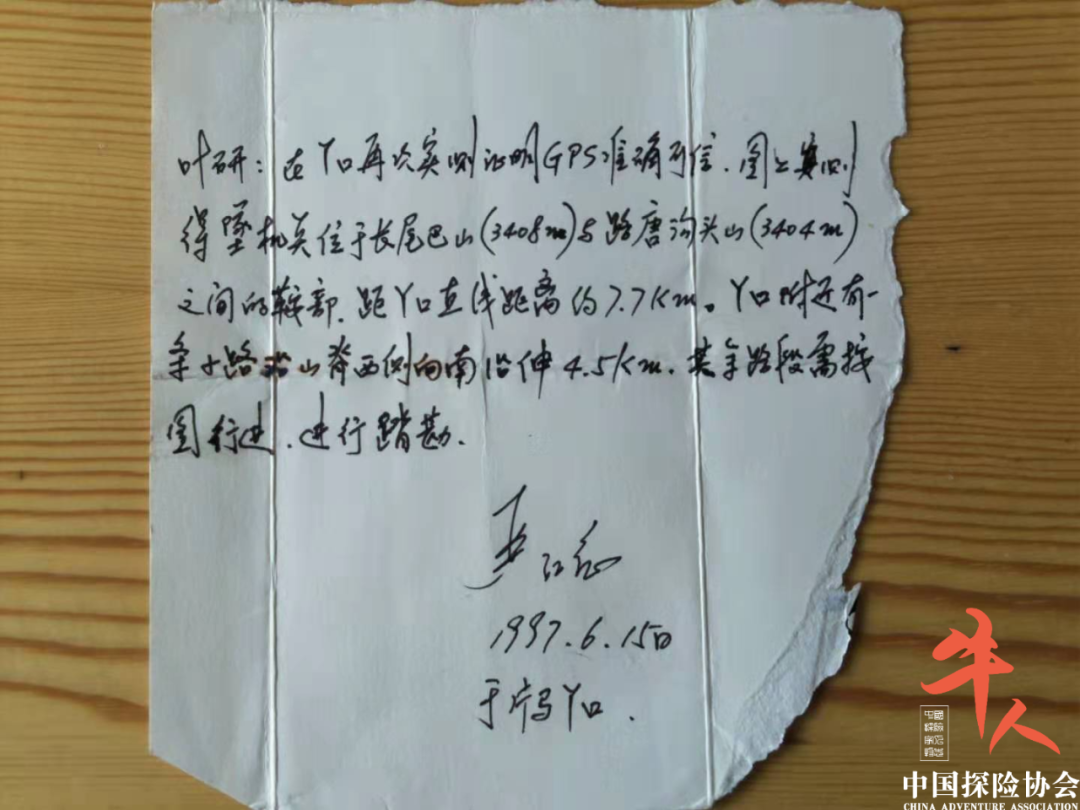 叶研：在丫口再次实测证明GPS准确可信．图上实测
得坠机点位于长尾巴山(3408m)与踏唐沟头山(3404m)
之间的鞍部．距丫口直线距离约7.7Km。丫口附近有一
条小路沿山脊西侧向南沿伸4.5Km．其余路段需按
图行进．进行踏勘．
严江征
1997.6.15日
于片马丫口．
牛人
中国探险协会
CHINA ADVENTURE ASSOCIATION